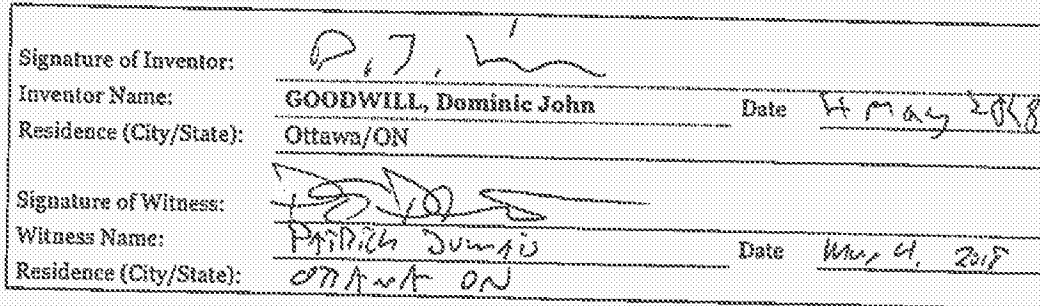 Signature of Inventor:
Inventor Name: GOODWILL, Dominic John Date 4 May 2018
Residence (City/State): Ottawa/ON
Signature of Witness:
Witness Name: Date May 4, 2018
Residence (City/State): OTTAWA ON